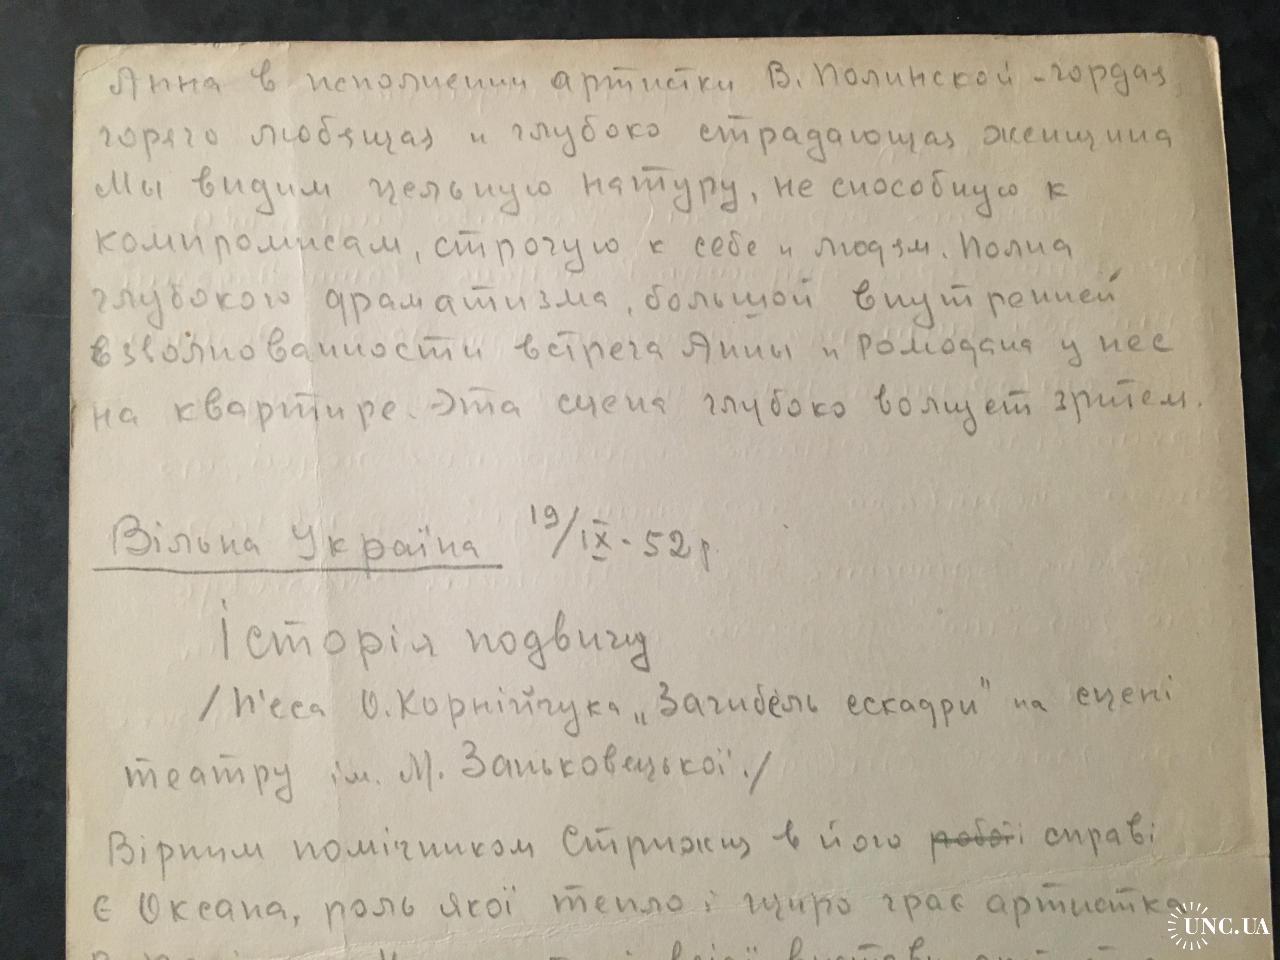 Анна в исполнении артистки В. Полинской - гордая,
горячо любящая и глубоко страдающая женщина
Мы видим цельную натуру, не способную к
компромисам, строгую к себе и людям. Полна
глубокого драматизма, большой внутренней
взволнованности встреча Анны и Ромодана у нее
на квартире. Эта сцена глубоко волнует зрителя.
Вільна Україна 19/IX - 52 р.
Історія подвигу
/П'єса О. Корнійчука „Загибель ескадри" на сцені
театру ім. М. Заньковецької./
Вірним помічником Стрижня в його роботі справі
є Оксана, роль якої тепло і щиро грає артистка
UNC.UA